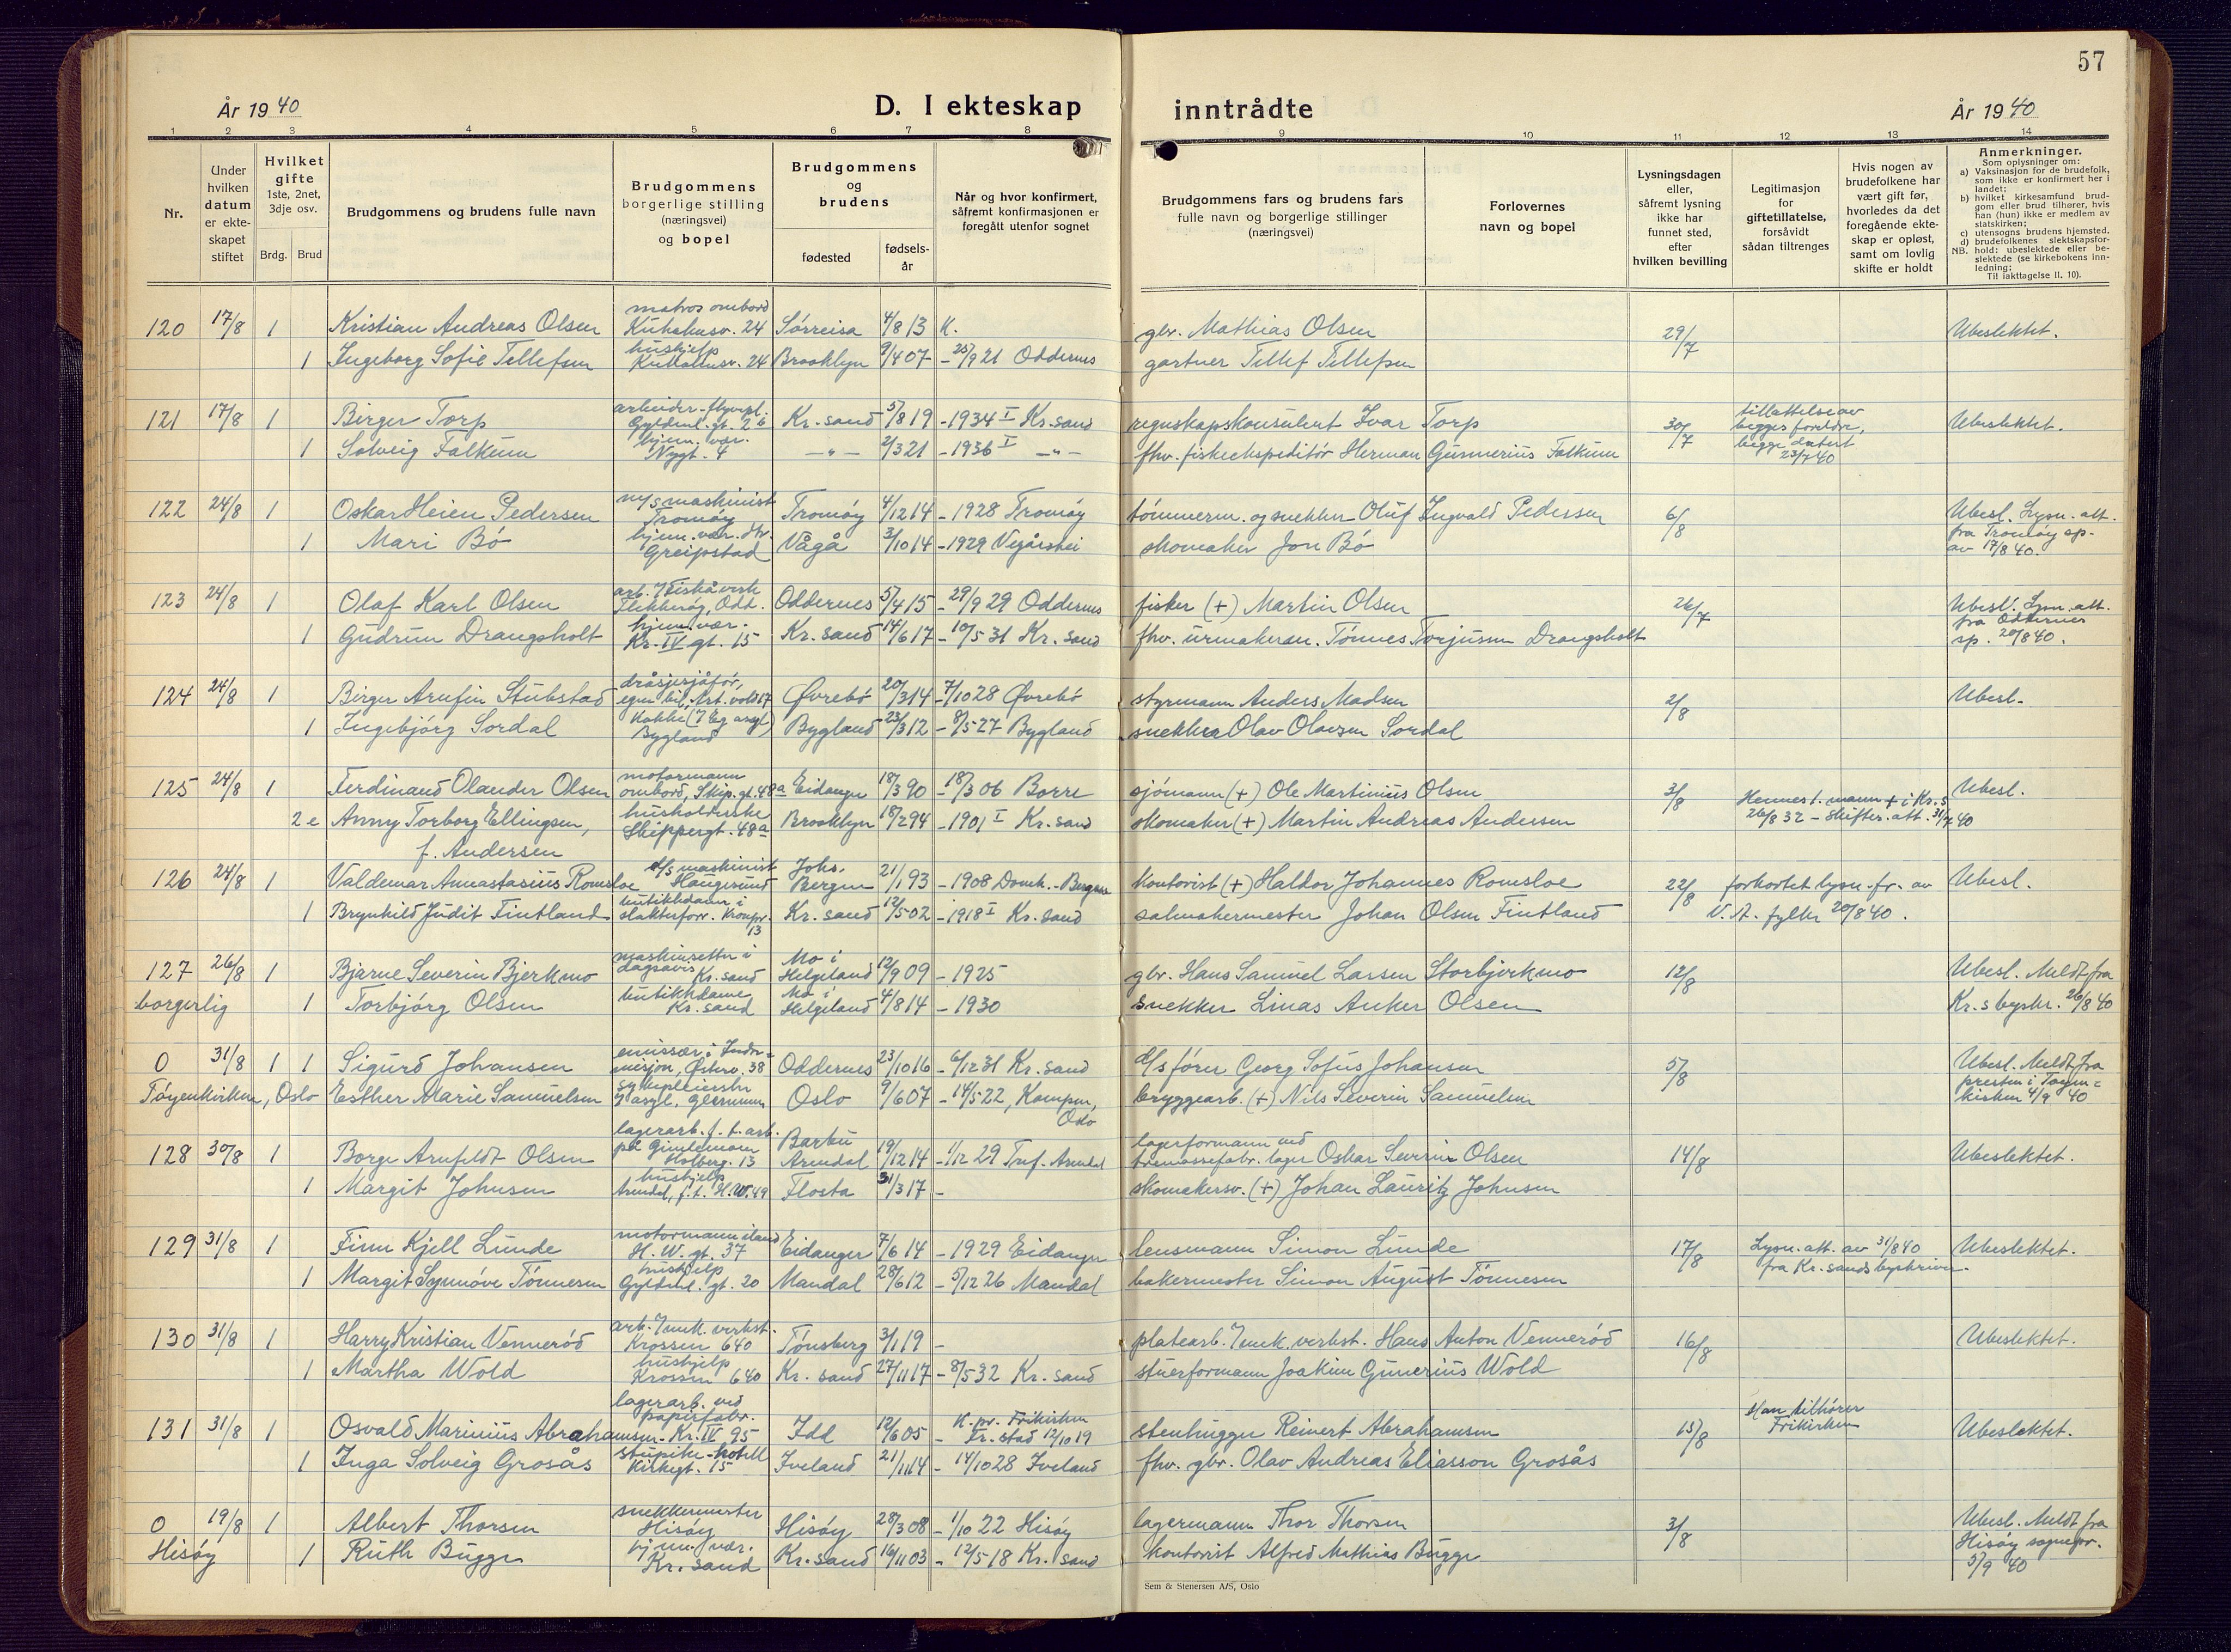 57
År 1940
D. I ekteskap inntrådte
År 1940
1 2 3 4 5 6 7 8 9 10 11 12 13 14
Nr.
Under hvilken datum er ekteskapet stiftet
Hvilket gifte 1ste, 2net, 3dje osv.
Brdg. Brud
Brudgommens og brudens fulle navn
Brudgommens borgerlige stilling (næringsvei) og bopel
Brudgommens og brudens
fødested
fødselsår
Når og hvor konfirmert, såfremt konfirmasjonen er foregått utenfor sognet
Brudgommens fars og brudens fars fulle navn og borgerlige stillinger (næringsvei)
Forlovernes navn og bopel
Lysningsdagen eller, såfremt lysning ikke har funnet sted, efter hvilken bevilling
Legitimasjon for giftetillatelse, forsåvidt sådan tiltrenges
Hvis nogen av brudefolkene har vært gift før, hvorledes da det foregående ekteskap er opløst, samt om lovlig skifte er holdt
Anmerkninger.
Som oplysninger om:
a) Vaksinasjon for de brudefolk, som ikke er konfirmert her i landet;
b) hvilket kirkesamfund brudgom eller brud tilhører, hvis han (hun) ikke er medlem av statskirken;
c) utensogns brudens hjemsted.
d) brudefolkenes slektskapsforhold: ubeslektede eller beslektede (se kirkebokens innledning;
NB. Til iakttagelse II. 10).
120 17/8 1 Kristian Andreas Olsen matros ombord Kuholmsv. 24 Sørreisa 4/8 13 K. gbr. Mathias Olsen 29/7 Ubeslektet.
1 Ingeborg Sofie Tellefsen hushjelp Kuholmsv. 24 Brooklyn 9/4 07 - 25/9 21 Oddernes gartner Tellef Tellefsen
121 17/8 1 Birger Torp arbeider - flyvepl. Gyldenl. gt. 26 Kr.sand 5/8 19 - 1934 I Kr.sand regnskapskonsulent Ivar Torp 30/7 tillattelse av begges foreldre, begge datert 23/7 40 Ubeslektet.
1 Solveig Falkum hjem. vær. Nygt. 4 — „ — 2/3 21 - 1936 I — „ — fhv. fiskeekspeditør Herman Gunnerius Falkum
122 24/8 1 Oskar Heien Pedersen m/s maskinist Tromøy Tromøy 4/12 14 - 1928 Tromøy tømmerm. og snekker Oluf Ingvald Pedersen 6/8 Ubesl. Lysn. att. fra Tromøy sp. av 17/8 40.
1 Mari Bø hjem. vær. Greipstad Vågå 3/10 14 - 1929 Vegårshei skomaker Jon Bø
123 24/8 1 Olaf Karl Olsen arb. / Fiskå verk Flekkerøy, Odd. Oddernes 5/4 15 - 29/9 29 Oddernes fisker (+) Martin Olsen 26/7 Ubesl. Lysn. att. fra Oddernes sp. 20/8 40.
1 Gudrun Drangsholt hjem. vær. Kr. IV gt. 15 Kr.sand 14/6 17 - 10/5 31 Kr.sand fhv. urmaker Tønnes Torjusen Drangsholt
124 24/8 1 Birger Arnfin Stubstad dråsjesjåfør, egen bil, Art. vold 17 Øvrebø 20/3 14 - 7/10 28 Øvrebø styrmann Anders Madsen 2/8 Ubesl.
1 Ingebjørg Sordal Kokke (/ Eg asyl) Bygland Bygland 23/3 12 - 8/5 27 Bygland snekker Olav Olavsen Sordal
125 24/8 1 Ferdinand Olander Olsen motormann ombord, Skip. gt. 48a Eidanger 18/3 90 - 18/3 06 Borre sjømann (+) Ole Martinius Olsen 3/8 Hennes 1. mann + i Kr.s 26/8 32 - skifter. att. 31/7 40 Ubesl.
2e Anny Torborg Ellingsen, f. Andersen husholderske Skippergt. 48a Brooklyn 18/2 94 - 1901 I Kr.sand skomaker (+) Martin Andreas Andersen
126 24/8 1 Valdemar Annastasius Romsloe d/s maskinist Haugesund Johs. Bergen 21/1 93 - 1908 Domk. - Bergen kontorist (+) Haldor Johannes Romsloe 22/8 forkortet lysn. fr. av V. A. fylke 20/8 40. Ubesl.
1 Brynhild Judit Fintland butikkdame i slakterforr. Kronpr. 13 Kr. sand 12/5 02 - 1918 I Kr. sand salmakermester Johan Olsen Fintland
127 26/8 1 Bjarne Severin Bjerkmo maskinsetter i dagsavis Kr.sand Mo i Helgeland 12/9 09 - 1925 gbr. Hans Samuel Larsen Storbjerkmo 12/8 Ubesl. Meldt fra
borgerlig 1 Torbjørg Olsen butikkdame Kr.sand Mo i Helgeland 4/8 14 - 1930 snekker Linas Anker Olsen Kr.s byskr. 26/8 40
0 31/8 1 1 Sigurd Johansen emissær i Indremisjon, Østerv. 38 Oddernes 23/10 16 - 6/12 31 Kr. sand d/s fører Georg Sofus Johansen 5/8 Ubesl. Meldt fra presten i Tøyenkirken 4/9 40
Tøyenkirken, Oslo Esther Marie Samuelsen sykepleierske Oslo 9/6 07 - 14/5 22, Kampen, Oslo bryggearb. (+) Nils Severin Samuelsen
128 30/8 1 Borge Arnfeldt Olsen lagerarb. f. t. arb. på Gimlemoen Kolberg. 13 Barbu Arendal 19/12 14 - 1/12 29 Tref. Arendal lagerformann ved tremassefabr. lager Oskar Severin Olsen 14/8 Ubeslektet.
1 Margit Johnsen hushjelp Arendal, f. t. H.W. 49 Flosta 31/3 17 - skomakersv. (+) Johan Lauritz Johnsen
129 31/8 1 Finn Kjell Lunde motormann iland H. W. gt. 37 Eidanger 7/6 14 - 1929 Eidanger lensmann Simon Lunde 17/8 Lysn. att. av 31/8 40 fra Kr.sands byskriver. Ubeslektet.
1 Margit Synnøve Tønnesen hushjelp Gyldenl. gt. 20 Mandal 28/6 12 - 5/12 26 Mandal bakermester Simon August Tønnesen
130 31/8 1 Harry Kristian Vennerød arb. / mek. verkst. Krossen 640 Tønsberg 3/1 19 - platearb. / mek. verkst. Hans Anton Vennerød 16/8 Ubeslektet.
1 Martha Wold hushjelp Krossen 640 Kr. sand 27/11 17 - 8/5 32 Kr. sand stuerformann Joakim Gunerius Wold
131 31/8 1 Osvald Marinius Abrahamsen lagerarb. ved papirfabr. Kr. IV 95 Idd 12/6 05 - K. pr. Frikirken Fr.stad 12/10 19 stenhugger Reinert Abrahamsen 15/8 Han tilhører Frikirken Ubeslektet.
1 Inga Solveig Grosås stuepike - hotell Kirkegt. 15 Iveland 21/11 14 - 14/10 28 Iveland fhv. gbr. Olav Andreas Eliasson Grosås
0 19/8 1 Albert Thorsen snekkermester Hisøy Hisøy 28/3 08 - 1/10 22 Hisøy lagermann Thor Thorsen 3/8 Ubesl. Meldt fra Hisøy sognepr. 5/9 40
Hisøy 1 Ruth Bugge hjem. vær. Kr.sand Kr.sand 16/11 03 - 12/5 18 Kr. sand kontorist Alfred Mathias Bugge
Sem & Stenersen A/S, Oslo